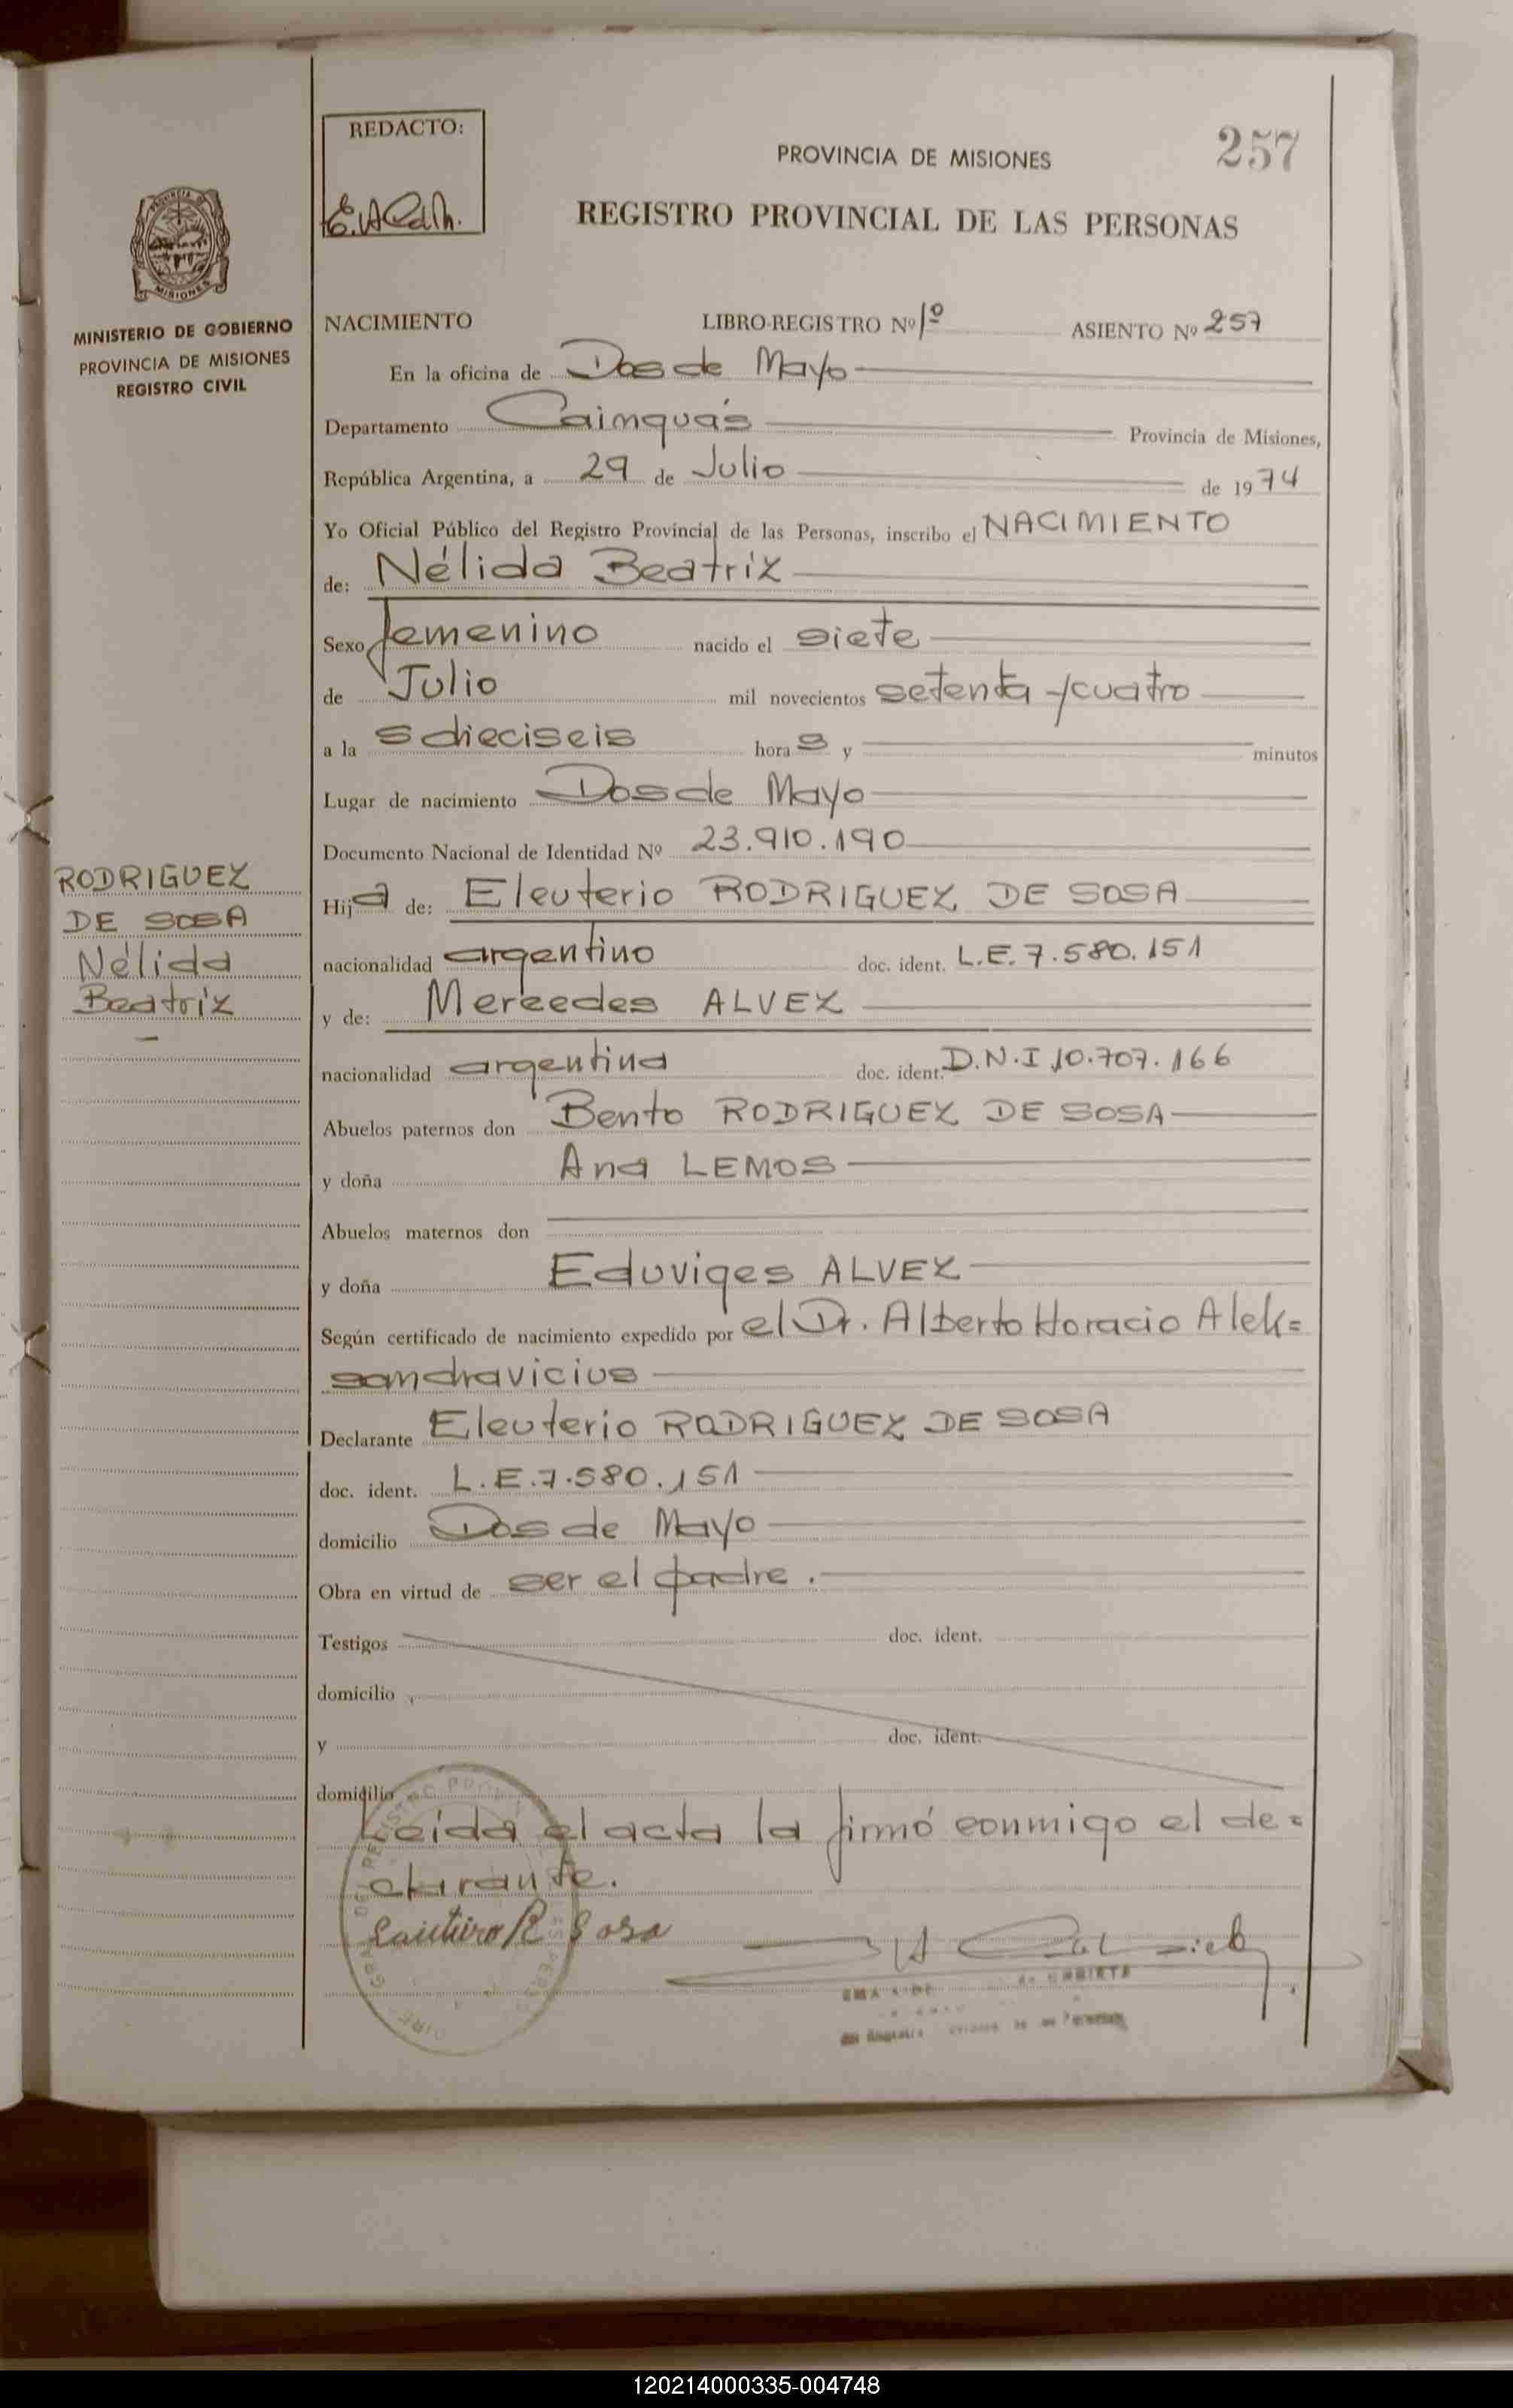 257
REDACTO:
PROVINCIA DE MISIONES
REGISTRO PROVINCIAL DE LAS PERSONAS
MINISTERIO DE GOBIERNO
PROVINCIA DE MISIONES
REGISTRO CIVIL
NACIMIENTO LIBRO-REGISTRO Nº 1º ASIENTO Nº 257
En la oficina de Dos de Mayo
Departamento Cainguás Provincia de Misiones,
República Argentina, a 29 de Julio de 1974
Yo Oficial Público del Registro Provincial de las Personas, inscribo el NACIMIENTO
de: Nélida Beatríz
Sexo femenino nacido el siete
de Julio mil novecientos setenta y cuatro
a la s dieciseis hora s y minutos
Lugar de nacimiento Dos de Mayo
Documento Nacional de Identidad Nº 23.910.190
RODRIGUEZ
DE SOSA
Nélida
Beatríz
Hija de: Eleuterio RODRIGUEZ DE SOSA
nacionalidad argentino doc. ident. L.E. 7.580.151
y de: Mercedes ALVEZ
nacionalidad argentina doc. ident. D.N.I 10.707.166
Abuelos paternos don Bento RODRIGUEZ DE SOSA
y doña Ana LEMOS
Abuelos maternos don
y doña Eduviges ALVEZ
Según certificado de nacimiento expedido por el Dr. Alberto Horacio Alek=
sandravicius
Declarante Eleuterio RODRIGUEZ DE SOSA
doc. ident. L.E. 7.580.151
domicilio Dos de Mayo
Obra en virtud de ser el padre.
Testigos doc. ident.
domicilio
y doc. ident.
domicilio
Leída el acta la firmó conmigo el de=
clarante.
120214000335-004748